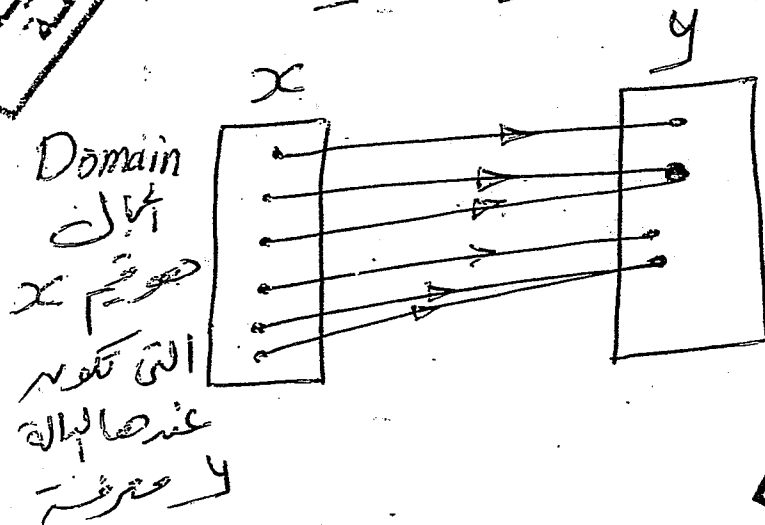 x
y
Domain
المجال
هو قيم x
التى تكون
عندها الدالة
y معرفة